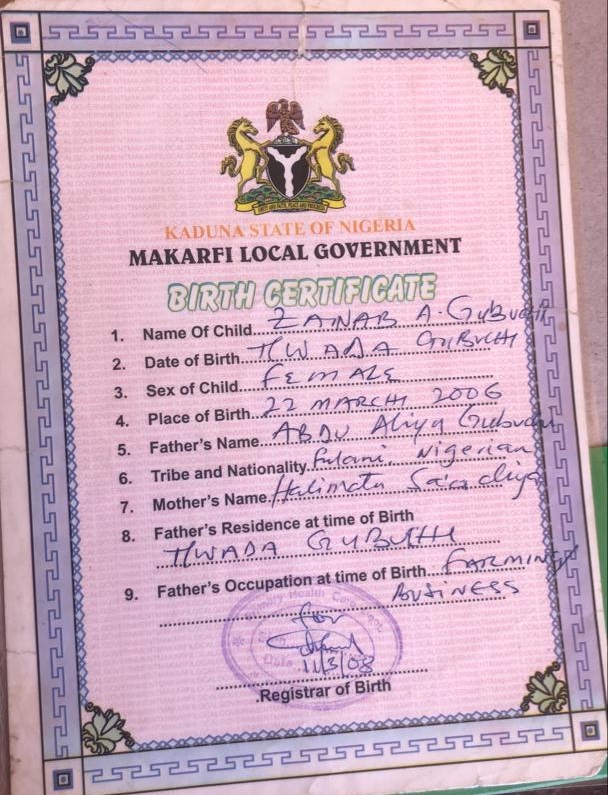 KADUNA STATE OF NIGERIA
MAKARFI LOCAL GOVERNMENT
BIRTH CERTIFICATE
1. Name Of Child ZAINAB A. GUBUCHI
2. Date of Birth T/WADA GUBUCHI
3. Sex of Child FEMALE
4. Place of Birth 22 MARCH 2006
5. Father's Name ABDU Aliya Gubuchi
6. Tribe and Nationality Fulani Nigerian
7. Mother's Name Halimatu Sa'adiya
8. Father's Residence at time of Birth
T/WADA GUBUCHI
9. Father's Occupation at time of Birth FARMING &
BUSINESS
Primary Health Care
for
Sign
Date
11/3/08
.Registrar of Birth